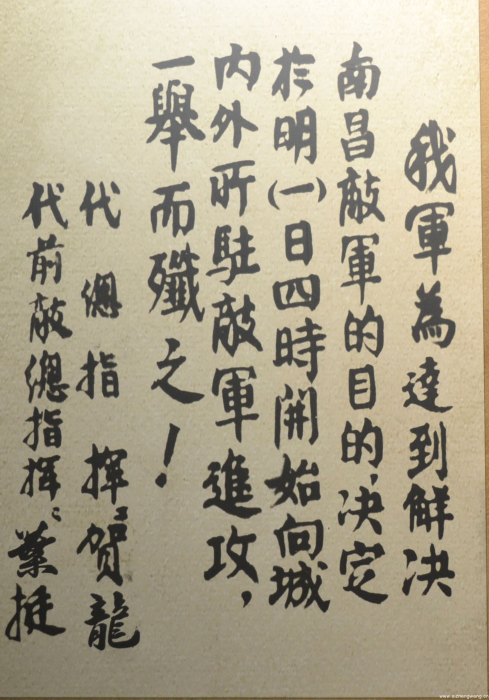 我軍為達到解决
南昌敵軍的目的，决定
於明（一）日四時開始向城
内外所駐敵軍進攻，
一舉而殲之！
代總指揮：賀龍
代前敵總指揮：葉挺